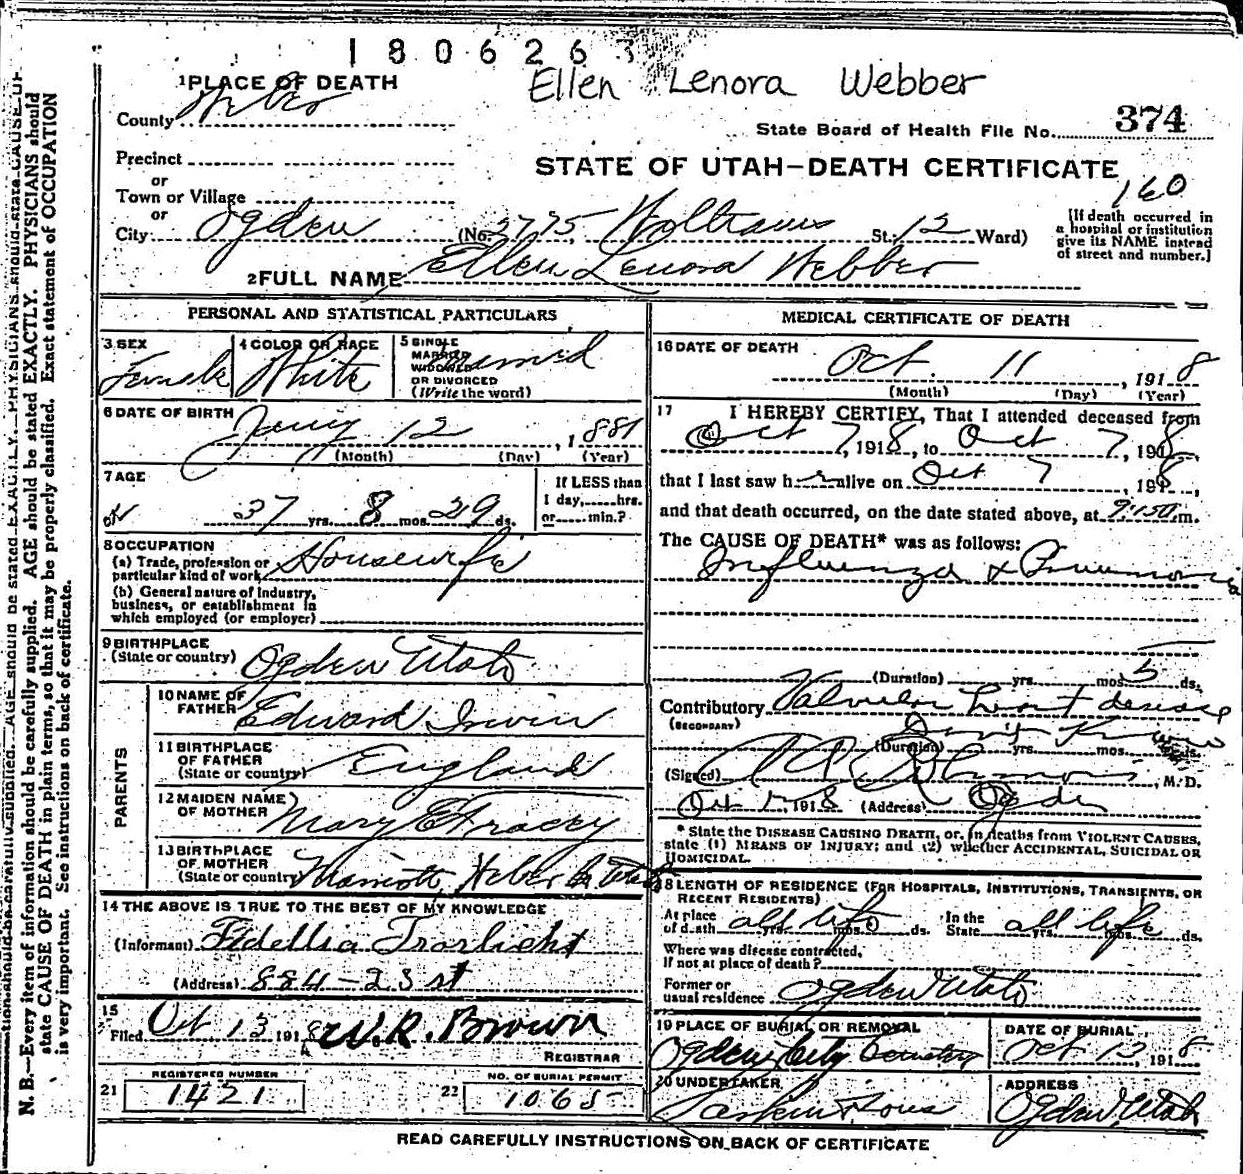 180626
Ellen Lenora Webber
1 PLACE OF DEATH
County Weber
State Board of Health File No. 374
Precinct
STATE OF UTAH—DEATH CERTIFICATE
or
160
Town or Village
or
City Ogden (No. 2775 St. 12 Ward)
[If death occurred in a hospital or institution give its NAME instead of street and number.]
2 FULL NAME Ellen Lenora Webber
PERSONAL AND STATISTICAL PARTICULARS
3 SEX
Female
4 COLOR OR RACE
White
5 SINGLE
MARRIED
WIDOWED
OR DIVORCED
(Write the word)
6 DATE OF BIRTH
Jany 12, 1881
(Month) (Day) (Year)
7 AGE
37 yrs. 8 mos. 29 ds.
If LESS than
1 day, hrs.
or min.?
8 OCCUPATION
(a) Trade, profession or
particular kind of work Housewife
(b) General nature of industry,
business, or establishment in
which employed (or employer)
9 BIRTHPLACE
(State or country) Ogden Utah
PARENTS
10 NAME OF
FATHER Edward Irwin
11 BIRTHPLACE
OF FATHER
(State or country) England
12 MAIDEN NAME
OF MOTHER Mary E Tracey
13 BIRTHPLACE
OF MOTHER
(State or country) Marriott, Weber Co Utah
14 THE ABOVE IS TRUE TO THE BEST OF MY KNOWLEDGE
(Informant) Fidellia
(Address) 884 - 23 st
15
Filed Oct 13 1918 W. R. Brown
REGISTRAR
REGISTERED NUMBER
21 1421
NO. OF BURIAL PERMIT
22 1065
MEDICAL CERTIFICATE OF DEATH
16 DATE OF DEATH
Oct. 11, 1918
(Month) (Day) (Year)
17 I HEREBY CERTIFY, That I attended deceased from
Oct 7, 1918, to Oct 7, 1918,
that I last saw her alive on Oct 7, 1918,
and that death occurred, on the date stated above, at m.
The CAUSE OF DEATH* was as follows:
Influenza & Pneumonia
(Duration) yrs. mos. 5 ds.
Contributory Valvular heart disease
(SECONDARY)
Don't Know
(Duration) yrs. mos. ds.
(Signed) M. D.
Oct 1918 (Address) Ogden
* State the DISEASE CAUSING DEATH, or, in deaths from VIOLENT CAUSES,
state (1) MEANS OF INJURY; and (2) whether ACCIDENTAL, SUICIDAL OR
HOMICIDAL.
18 LENGTH OF RESIDENCE (FOR HOSPITALS, INSTITUTIONS, TRANSIENTS, OR
RECENT RESIDENTS)
At place
of death all life yrs. mos. ds.
In the
State all life yrs. mos. ds.
Where was disease contracted,
If not at place of death?
Former or
usual residence Ogden Utah
19 PLACE OF BURIAL OR REMOVAL
Ogden City Cemetery
DATE OF BURIAL
Oct 13, 1918
20 UNDERTAKER
Larkin & Sons
ADDRESS
Ogden, Utah
READ CAREFULLY INSTRUCTIONS ON BACK OF CERTIFICATE
N. B.—Every item of information should be carefully supplied. AGE should be stated EXACTLY. PHYSICIANS should
state CAUSE OF DEATH in plain terms, so that it may be properly classified. Exact statement of OCCUPATION
is very important. See instructions on back of certificate.